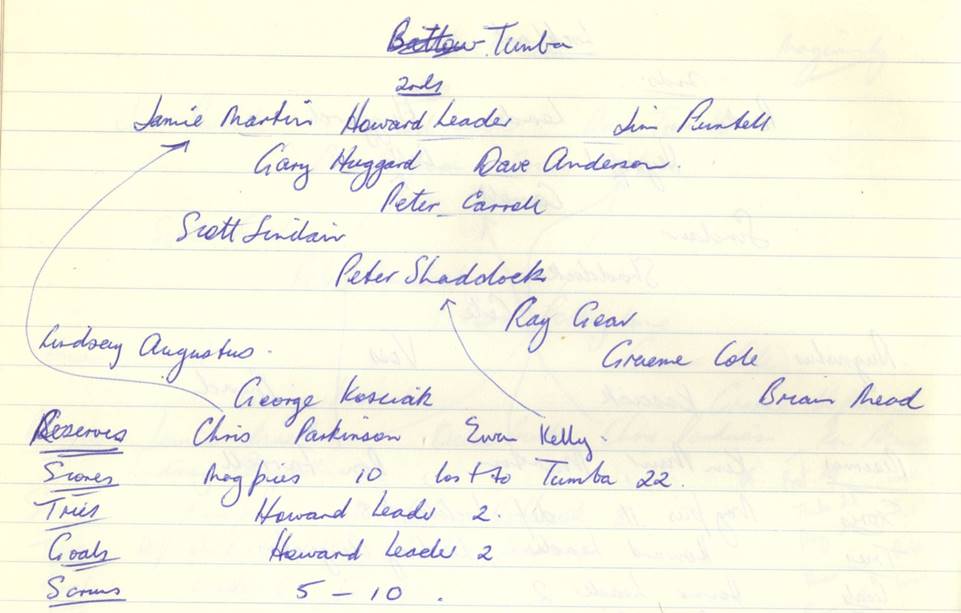 Batlow Tumba
2nds
Jamie Martin Howard Leader Jim Puntell
Gary Huggard Dave Anderson.
Peter Carroll
Scott Sinclair
Peter Shaddock
Ray Gear
Lindsay Augustus.
Graeme Cole
George Kosciak
Brian Mead
Reserves Chris Parkinson, Ewan Kelly.
Scores Magpies 10 lost to Tumba 22.
Tries Howard Leader 2.
Goals Howard Leader 2
Scrums 5 - 10.